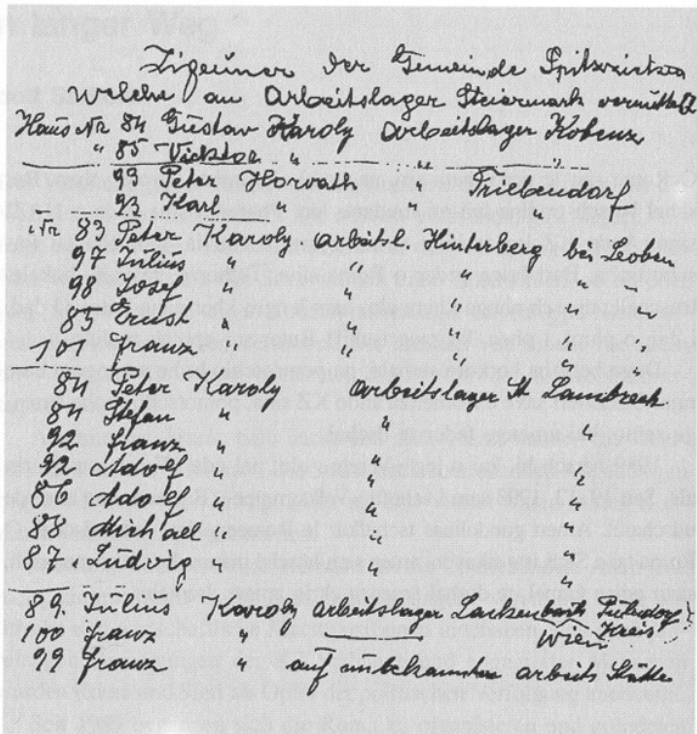 Zigeuner der Gemeinde Spitzzicken
welche am Arbeitslager Steiermark vermittelt
Haus Nr 84 Gustav Karoly Arbeitslager Kobenz
" 85 Vicktor " " "
93 Peter Horvath " Triebendorf
93 Karl " " "
Nr 83 Peter Karoly Arbeitsl. Hinterberg bei Leoben
97 Julius " " " " "
98 Josef " " " " "
85 Ernst " " " " "
101 Franz " " " " "
84 Peter Karoly Arbeitslager St Lambrech
84 Stefan " " "
92 Franz " " "
92 Adolf " " "
86 Adolf " " "
88 Michael " " "
87 Ludvig " " "
89. Julius Karoly Arbeitslager
100 Franz " Wien Kreis
99 Franz " auf unbekannten Arbeits Stätte